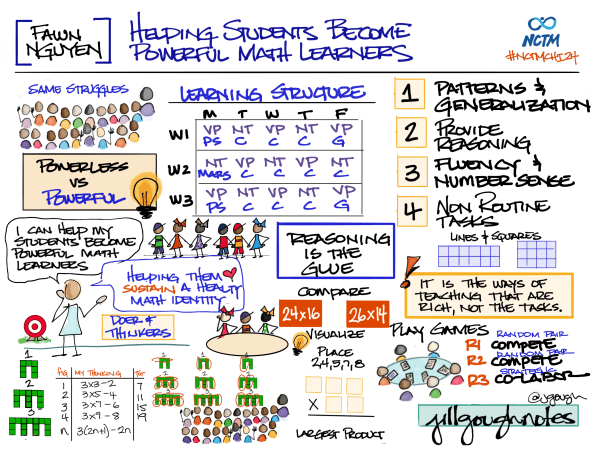 FAWN
NGUYEN
HELPING STUDENTS BECOME
POWERFUL MATH LEARNERS
NCTM
#NCTMCHI24
SAME STRUGGLES
POWERLESS
VS
POWERFUL
LEARNING STRUCTURE
M T W T F
W1 VP NT VP NT VP
PS C C C G
W2 NT VP NT VP NT
MARS C C C C
W3 VP NT VP NT VP
PS C C C G
1 PATTERNS &
GENERALIZATION
2 PROVIDE
REASONING
3 FLUENCY &
NUMBER SENSE
4 NON ROUTINE
TASKS
LINES & SQUARES
I CAN HELP MY
STUDENTS BECOME
POWERFUL MATH
LEARNERS
HELPING THEM
SUSTAIN A HEALTY
MATH IDENTITY
DOER &
THINKERS
REASONING
IS THE
GLUE
COMPARE
24x16 26x14
VISUALIZE
PLACE
2,4,5,7,8
X
LARGEST PRODUCT
! IT IS THE WAYS OF
TEACHING THAT ARE
RICH, NOT THE TASKS.
PLAY GAMES
RANDOM PAIR
R1 COMPETE
RANDOM PAIR
R2 COMPETE
STRATEGIC
R3 CO-LABOR
@jgough
jillgoughnotes
1
2
3
FIG MY THINKING TOT
1 3x3-2 7
2 3x5-4 11
3 3x7-6 15
4 3x9-8 19
n 3(2n+1)-2n
1 1
2 2
3 3